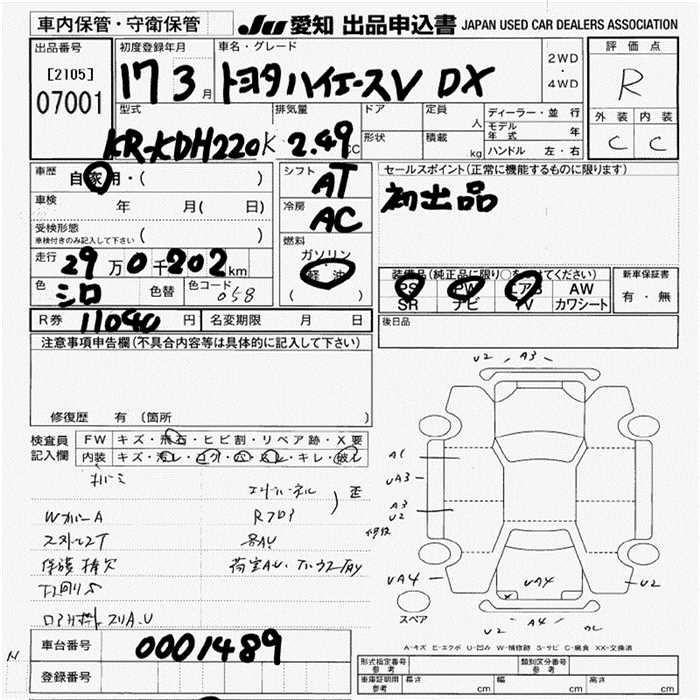 車内保管・守衛保管
JU 愛知 出品申込書 JAPAN USED CAR DEALERS ASSOCIATION
出品番号
[2105]
07001
初度登録年月
17 3月
車名・グレード
トヨタハイエースV DX
2WD
・
4WD
評価点
R
外装 内装
C C
型式
KR-KDH220K
排気量
2.49 CC
ドア
形状
定員 人
積載 kg
ディーラー・並行
モデル年式 年
ハンドル 左・右
車歴
自家用・( )
車検 年 月( 日)
受検形態
車検付きのみ記入して下さい ( )
走行
29万0千202km
色
シロ
色替
色コード 058
シフト
AT
冷房
AC
燃料
ガソリン
軽油
( )
セールスポイント(正常に機能するものに限ります)
初出品
装備品(純正品に限り○を付けてください)
PS PW エアB AW
SR ナビ TV カワシート
新車保証書
有・無
R券 11040 円
名変期限 月 日
後日品
注意事項申告欄(不具合内容等は具体的に記入して下さい)
修復歴 有 (箇所 )
検査員
記入欄
FW キズ・飛石・ヒビ割・リペア跡・X要
内装 キズ・汚レ・コゲ・穴・スレ・キレ・破レ
WカバーA
Rフロア
歪
U2 A3
A1
UA3
A3
U2
UA4
UA4
U2
U2 A4
スペア
A-キズ E-エクボ U-凹み W-補修跡 S-サビ C-腐食 XX-交換済
車台番号 0001489
登録番号
形式指定番号 参考
類別区分番号 参考
車庫証明用 参考
長さ cm
幅 cm
高さ cm